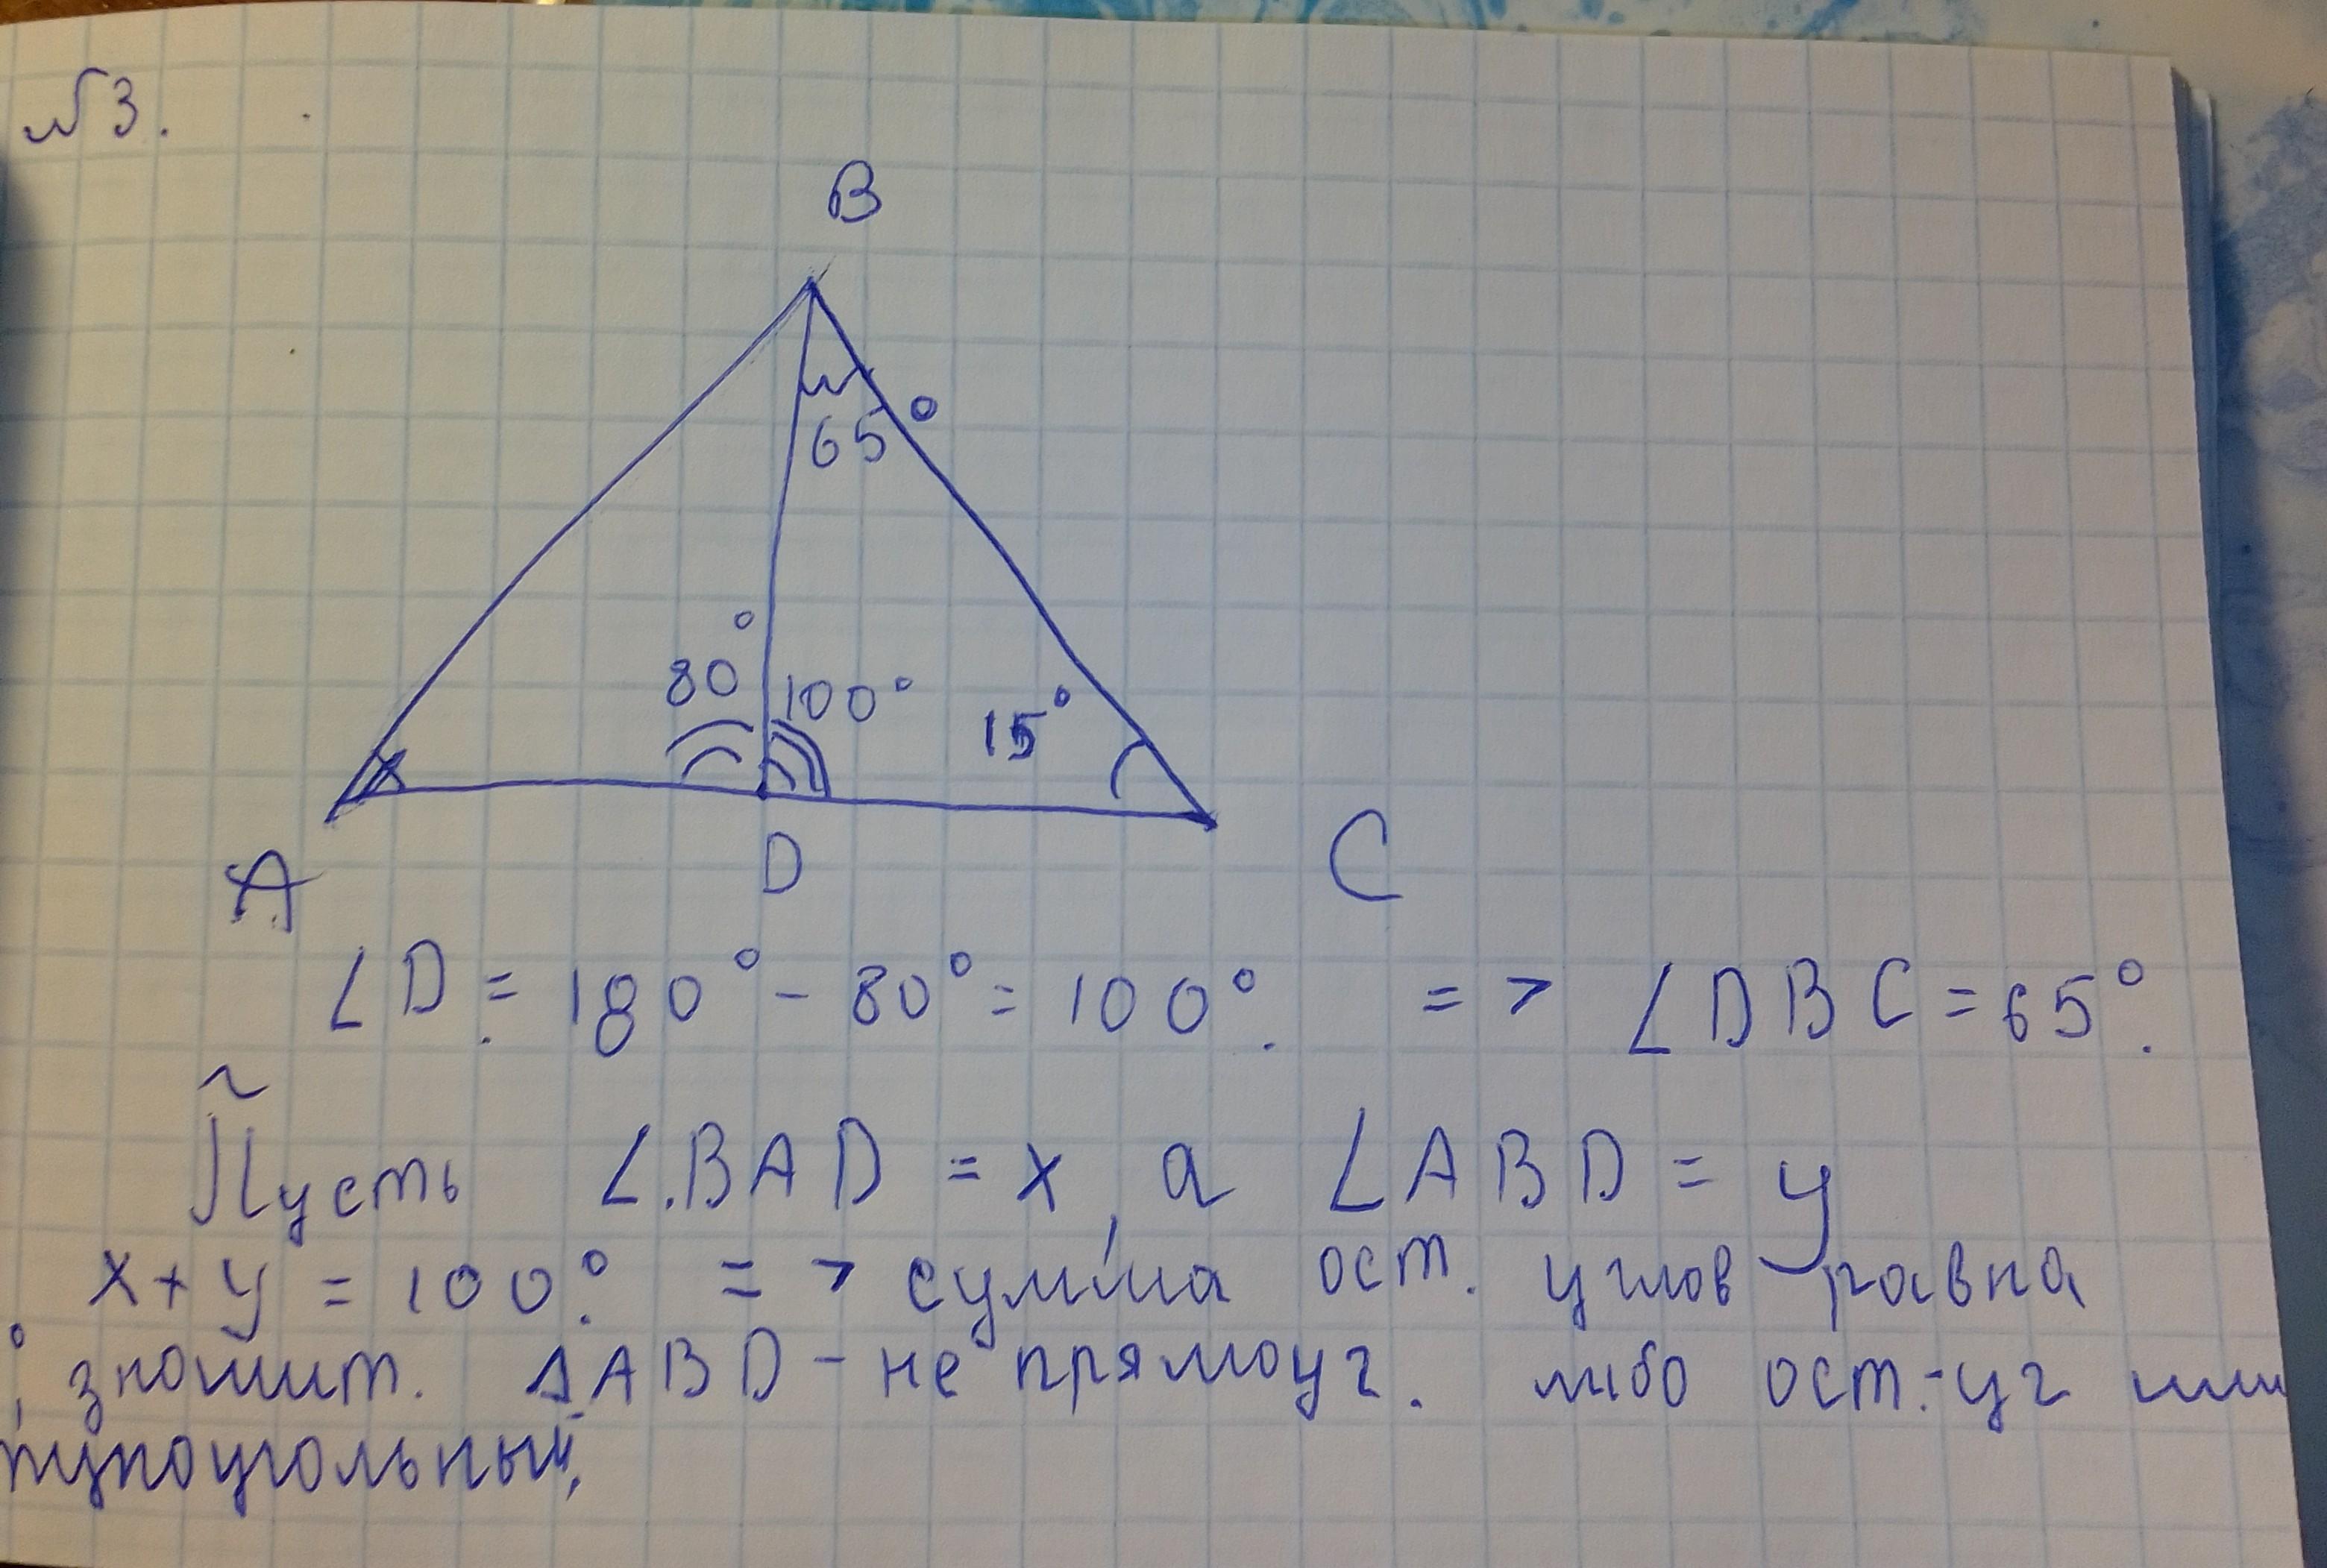 №3.
B
65°
80° 100° 15°
x
A D C
∠D = 180° - 80° = 100°. => ∠DBC = 65°.
Пусть ∠BAD = x, а ∠ABD = y
x + y = 100°. => сумма ост. углов равна
°, значит. ΔABD - не прямоуг. либо ост.-уг или
тупоугольный.